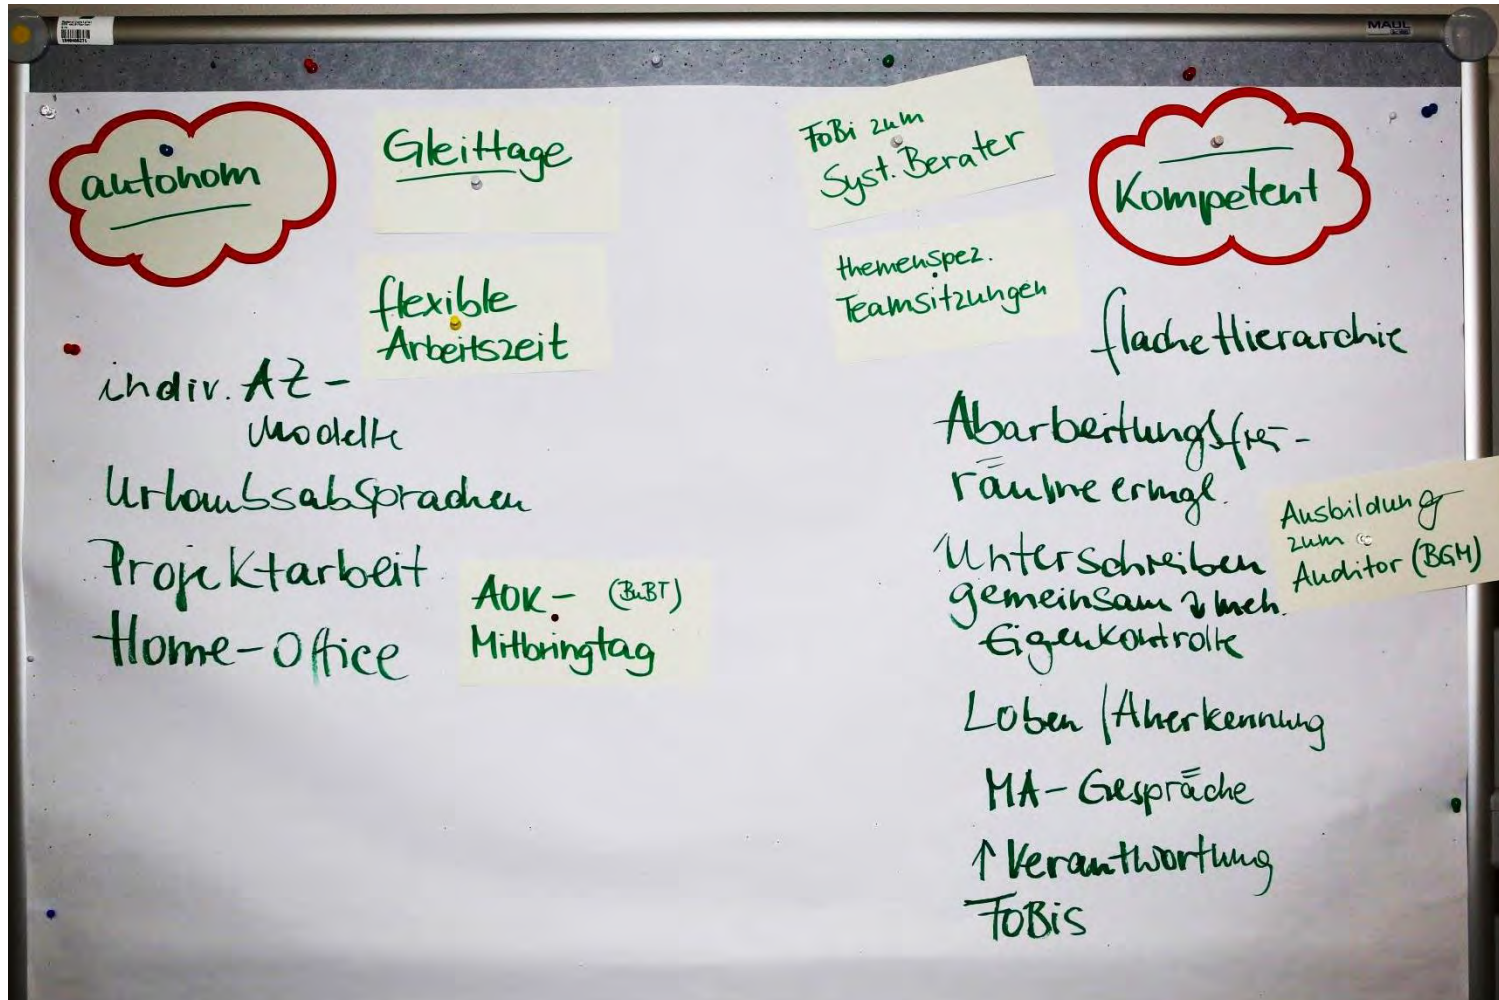 MAUL
autonom
Gleittage
flexible
Arbeitszeit
indiv. AZ-
Modelle
Urlaubsabsprachen
Projektarbeit
Home-Office
AOK- (BuBT)
Mitbringtag
FoBi zum
Syst. Berater
Kompetent
themenspez.
Teamsitzungen
flache Hierarchie
Abarbeitungsfrei-
räume ermgl.
Unterschreiben
gemeinsam
Eigenkontrolle
Ausbildung
zum
Auditor (BGM)
Loben / Anerkennung
MA-Gespräche
↑ Verantwortung
FoBis